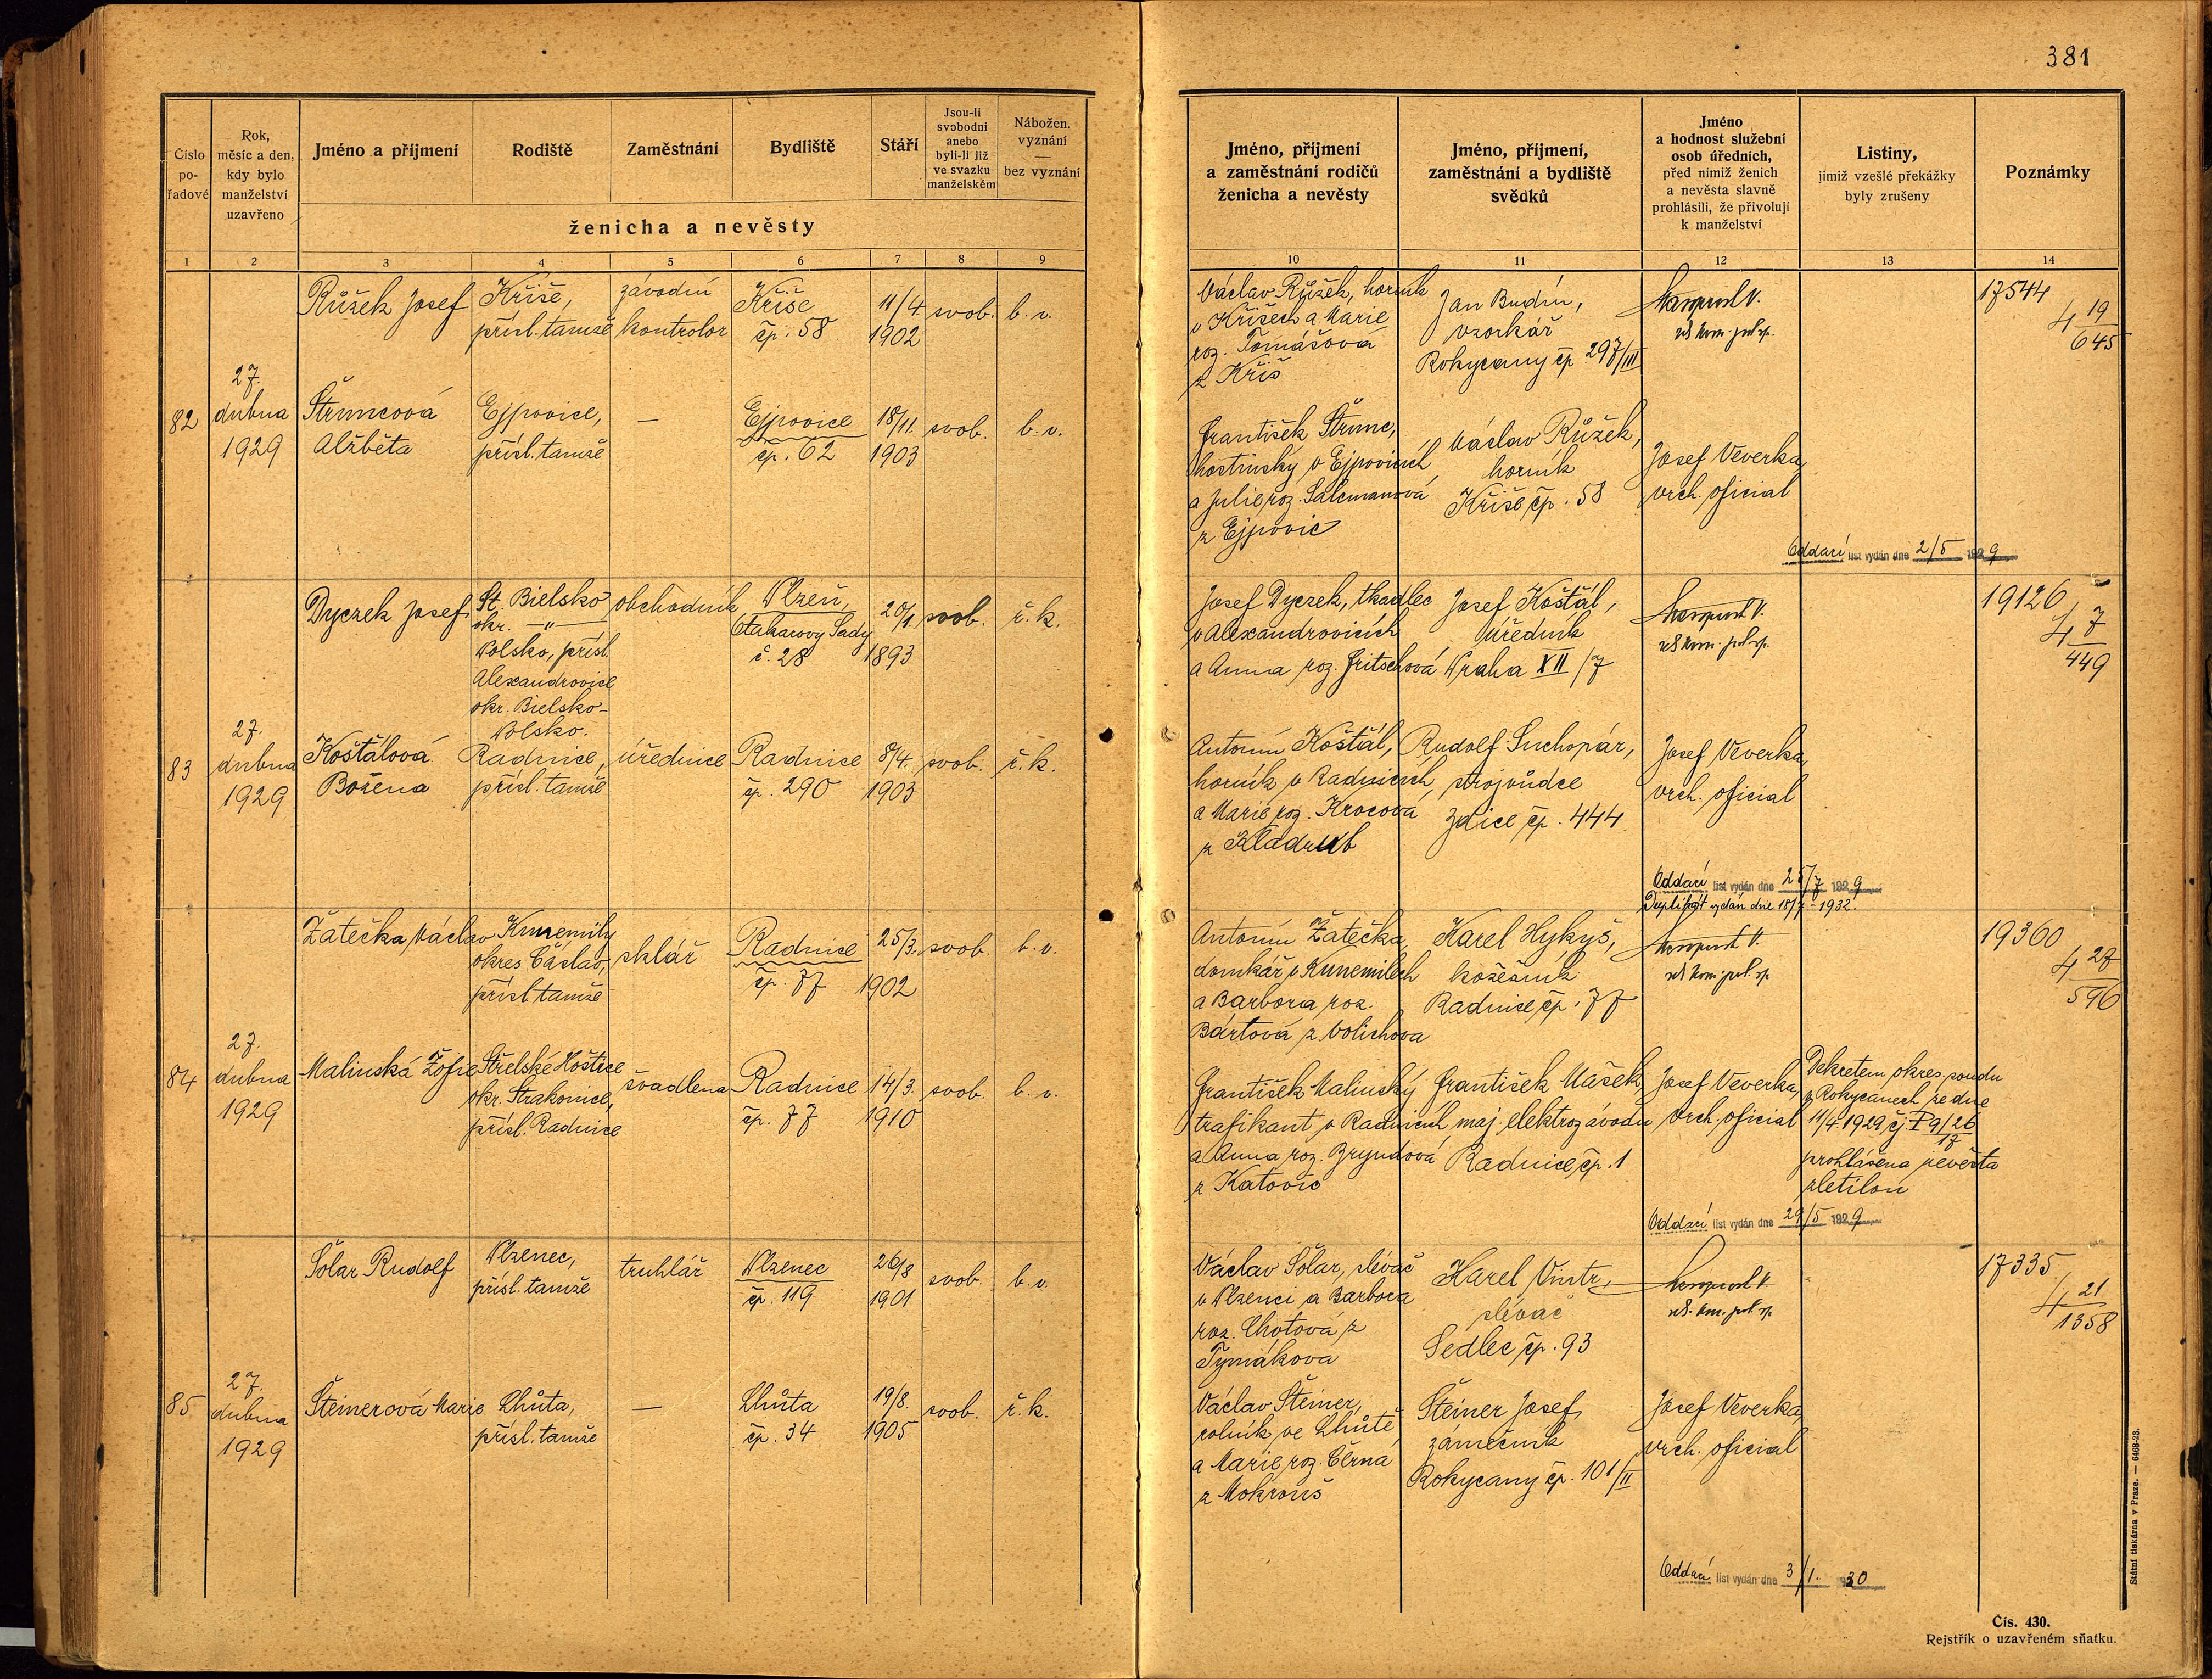 381
Číslo
po-
řadové
Rok,
měsíc a den,
kdy bylo
manželství
uzavřeno
Jméno a příjmení
Rodiště
Zaměstnání
Bydliště
Stáří
Jsou-li
svobodni
anebo
byli-li již
ve svazku
manželském
Nábožen.
vyznání
—
bez vyznání
ženicha a nevěsty
Jméno, příjmení
a zaměstnání rodičů
ženicha a nevěsty
Jméno, příjmení,
zaměstnání a bydliště
svědků
Jméno
a hodnost služební
osob úředních,
před nimiž ženich
a nevěsta slavně
prohlásili, že přivolují
k manželství
Listiny,
jimiž vzešlé překážky
byly zrušeny
Poznámky
1 2 3 4 5 6 7 8 9 10 11 12 13 14
82
27.
dubna
1929
Růžek Josef
Kříše,
přísl. tamže
závodní
kontrolor
Kříše
čp. 58
11/4
1902
svob.
b. v.
Václav Růžek, horník
v Kříšech a Marie
roz. Tomášová
z Kříš
Jan Budín,
vzorkář
Rokycany čp. 297/III
17544
4 19
645
Štruncová
Alžběta
Ejpovice,
přísl. tamže
—
Ejpovice
čp. 62
18/11.
1903
svob.
b. v.
František Štrunc,
hostinský v Ejpovicích
a Julie roz. Salcmanová
z Ejpovic
Václav Růžek,
horník
Kříše čp. 58
Josef Veverka,
vrch. oficial
Oddací list vydán dne 2/5 1929
83
27.
dubna
1929
Dyczek Josef
St. Bielsko
okr. —"—
Polsko, přísl.
Alexandrovice
okr. Bielsko-
Polsko.
obchodník
Plzeň,
Otakarovy Sady
č. 28
20/1.
1893
svob.
ř. k.
Josef Dyczek, tkadlec
v Alexandrovicích
a Anna roz. Fritschová
Josef Koštál,
úředník
Praha XII/7
19126
4 7
449
Koštálová
Božena
Radnice,
přísl. tamže
úřednice
Radnice
čp. 290
8/4.
1903
svob.
ř. k.
Antonín Koštál,
horník v Radnicích,
a Marie roz. Krocová
z Kladrub
Rudolf Suchopár,
strojvůdce
Zdice čp. 444
Josef Veverka,
vrch. oficial
Oddací list vydán dne 25/7 1929
Duplikát vydán dne 18/7 - 1932.
84
27.
dubna
1929
Žatečka Václav
Kunemily
okres Čáslav,
přísl. tamže
sklář
Radnice
čp. 77
25/3.
1902
svob.
b. v.
Antonín Žatečka,
domkář v Kunemilech
a Barbora roz.
Bártová z Volichova
Karel Hykyš,
kožešník
Radnice čp. 77
19360
4 28
596
Malinská Žofie
Střelské Hoštice
okr. Strakonice,
přísl. Radnice
švadlena
Radnice
čp. 77
14/3.
1910
svob.
b. v.
František Malinský
trafikant v Radnicích
a Anna roz. Bryndová
z Katovic
František Mašek,
maj. elektrozávodu
Radnice čp. 1
Josef Veverka,
vrch. oficial
Dekretem okres. soudu
v Rokycanech ze dne
11/4. 1929 čj. P 9/26
17
prohlášena nevěsta
zletilou
Oddací list vydán dne 29/5 1929
85
27.
dubna
1929
Šolar Rudolf
Plzenec,
přísl. tamže
truhlář
Plzenec
čp. 119
26/8
1901
svob.
b. v.
Václav Šolar, slévač
v Plzenci a Barbora
roz. Chotová z
Tymákova
Karel Vinstr,
slévač
Sedlec čp. 93
17335
4 21
1358
Šteinerová Marie
Lhůta,
přísl. tamže
—
Lhůta
čp. 34
19/8.
1905
svob.
ř. k.
Václav Šteiner,
rolník ve Lhůtě
a Marie roz. Černá
z Mokrouš
Šteiner Josef,
zámečník
Rokycany čp. 101/II
Josef Veverka,
vrch. oficial
Oddací list vydán dne 3/1. 1930
Státní tiskárna v Praze. — 6468-23.
Čís. 430.
Rejstřík o uzavřeném sňatku.